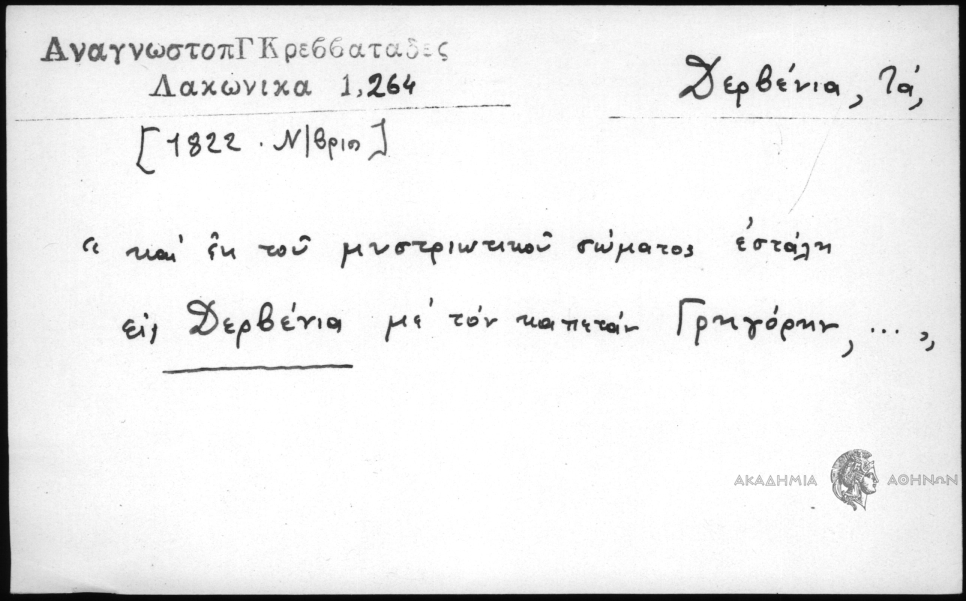 ΑναγνωστοπΓΚρεββαταδες
Λακωνικα 1,264
Δερβένια, Τά,
[1822 . Ν/βριο]
“ καί ἐκ τοῦ μυστριωτικοῦ σώματος ἐστάλη
εἰς Δερβένια μέ τόν καπετάν Γρηγόρην, ... „
ΑΚΑΔΗΜΙΑ ΑΘΗΝΩΝ